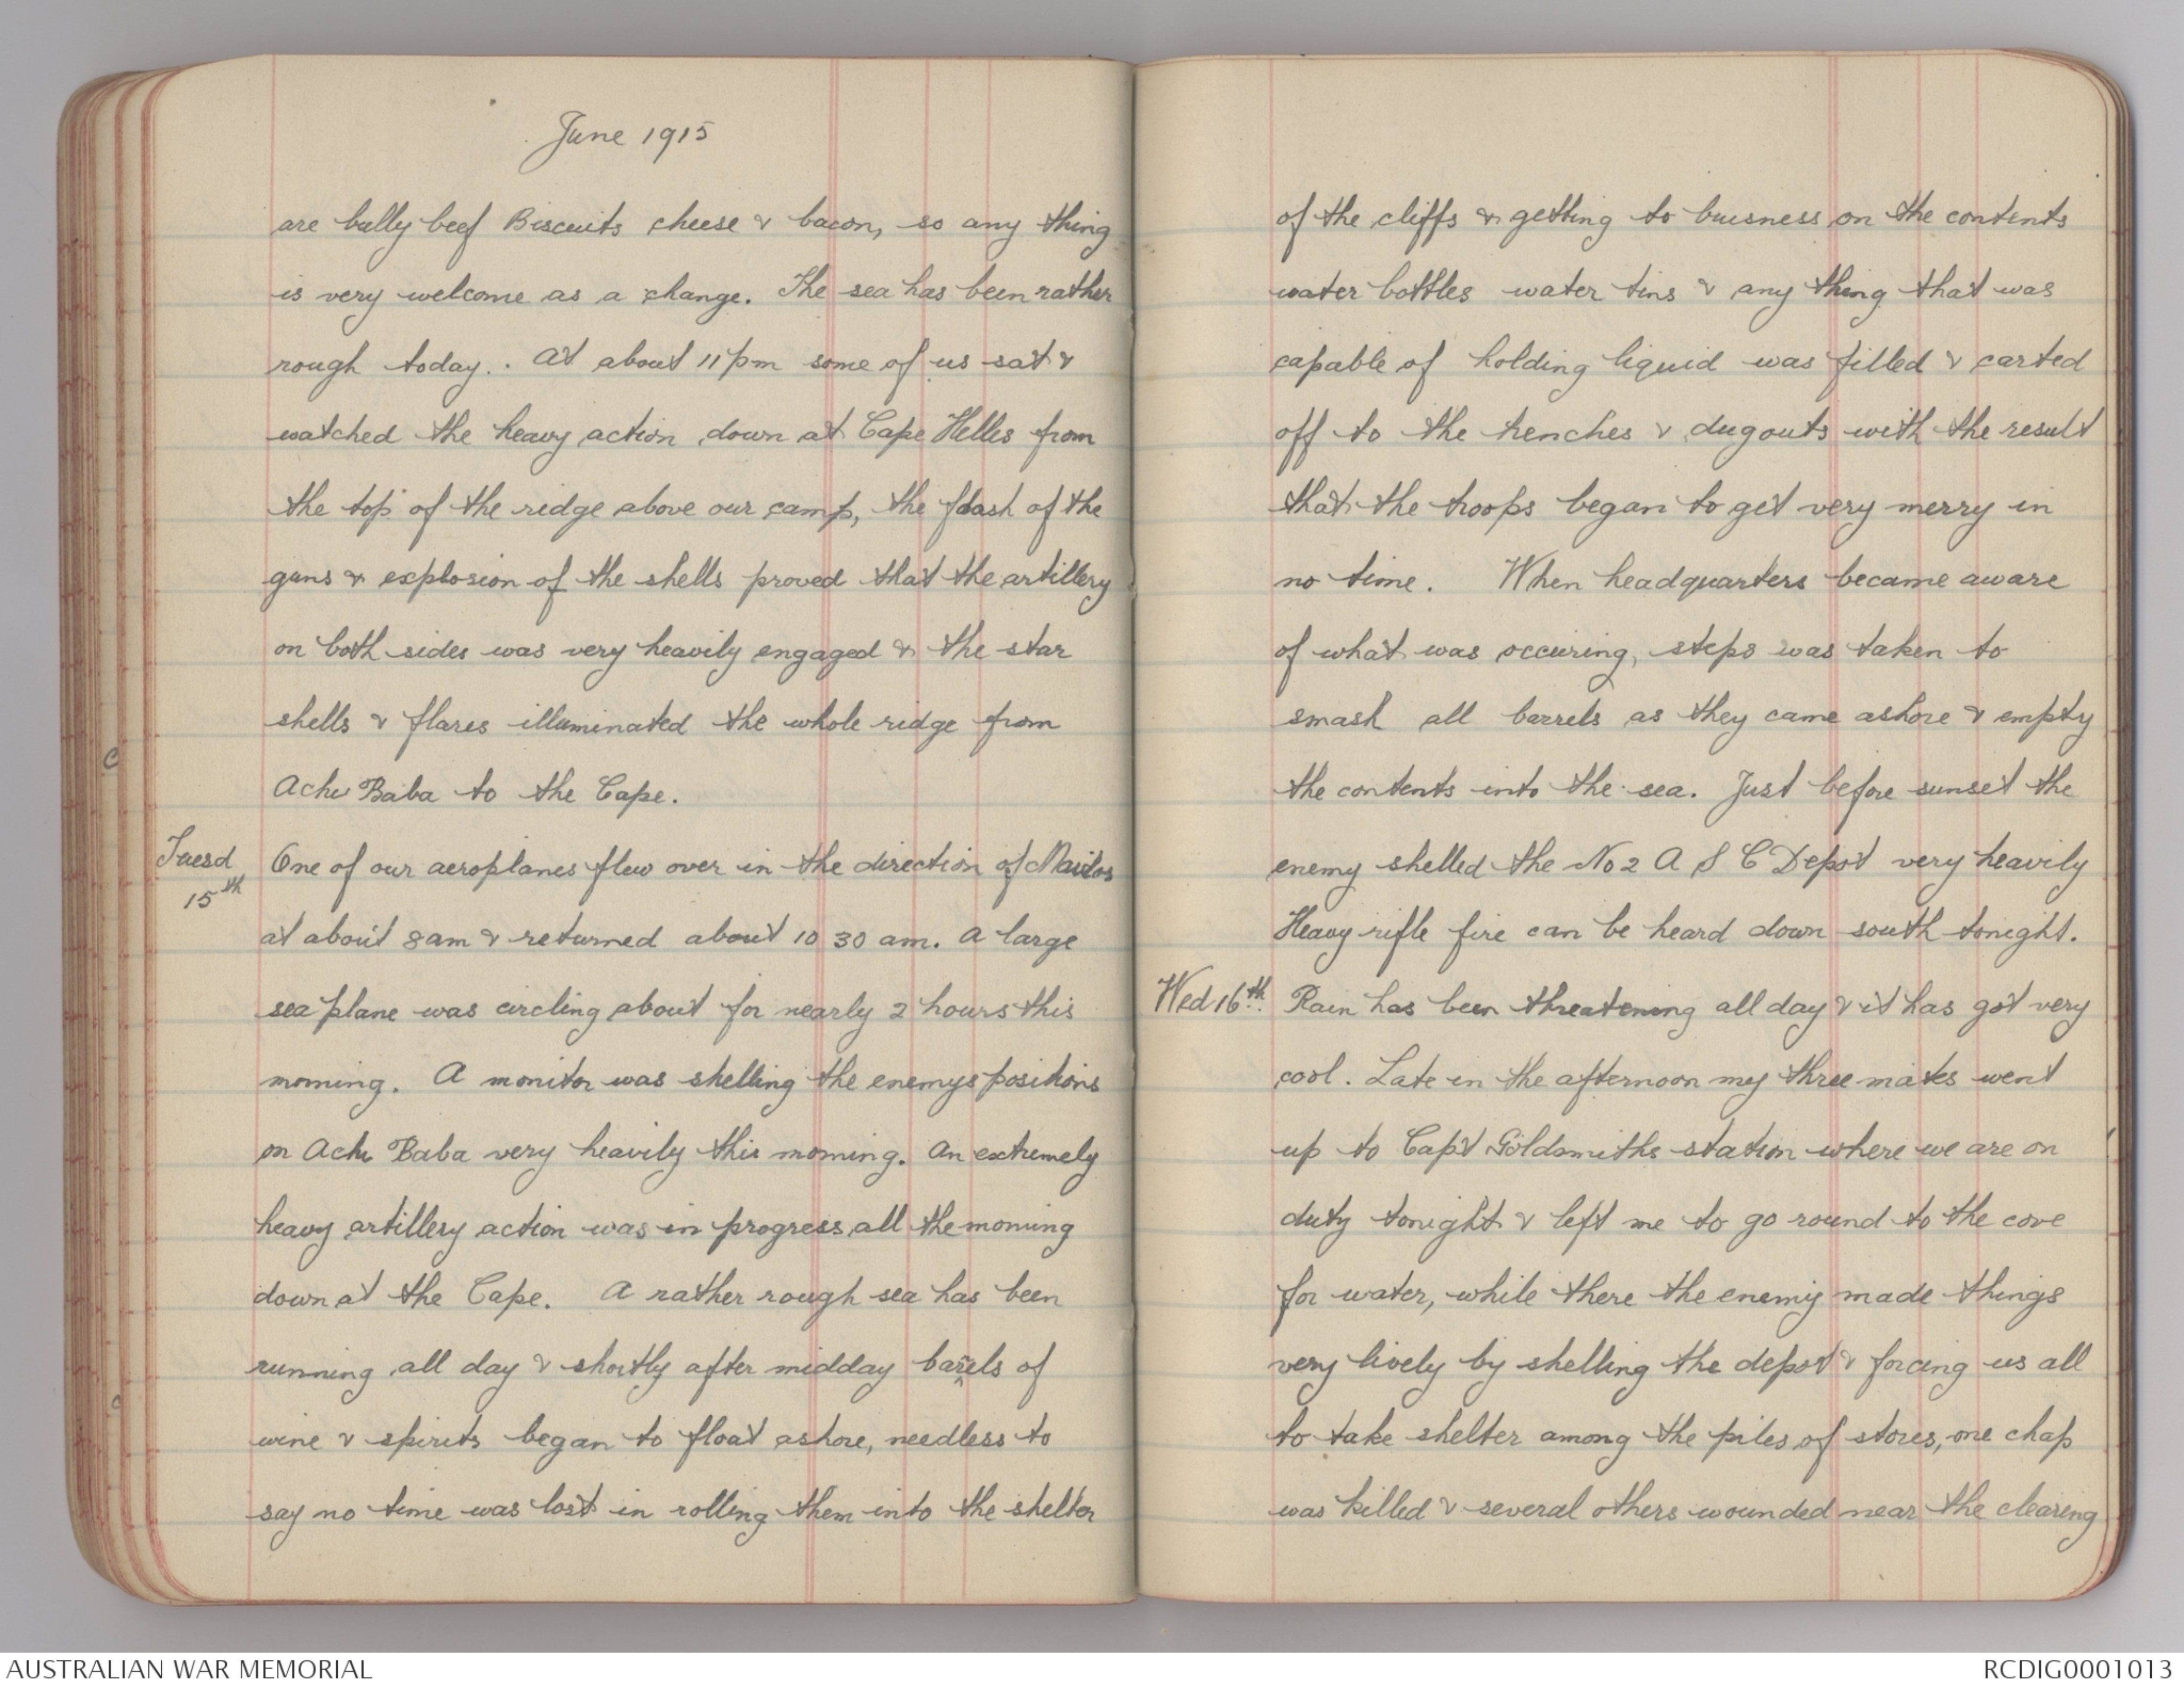 June 1915
are bully beef Biscuits cheese & bacon, so any thing
is very welcome as a change. The sea has been rather
rough today. . At about 11 pm some of us sat &
watched the heavy action down at Cape Helles from
the top of the ridge above our camp, the flash of the
guns & explosion of the shells proved that the artillery
on both sides was very heavily engaged & the star
shells & flares illuminated the whole ridge from
Achi Baba to the Cape.
Tuesd 15th One of our aeroplanes flew over in the direction of Maidos
at about 8 am & returned about 10 30 am. A large
sea plane was circling about for nearly 2 hours this
morning. A monitor was shelling the enemys positions
on Achi Baba very heavily this morning. An extremely
heavy artillery action was in progress all the morning
down at the Cape. A rather rough sea has been
running all day & shortly after midday barrels of
wine & spirits began to float ashore, needless to
say no time was lost in rolling them into the shelter
of the cliffs & getting to buisness on the contents
water bottles water tins & any thing that was
capable of holding liquid was filled & carted
off to the trenches & dugouts with the result
that the troops began to get very merry in
no time. When headquarters became aware
of what was occuring, steps was taken to
smash all barrels as they came ashore & empty
the contents into the sea. Just before sunset the
enemy shelled the No 2 A S C Depot very heavily
Heavy rifle fire can be heard down south tonight.
Wed 16th. Rain has been threatening all day & it has got very
cool. Late in the afternoon my three mates went
up to Capt Goldsmiths station where we are on
duty tonight & left me to go round to the cove
for water, while there the enemy made things
very lively by shelling the depot & forcing us all
to take shelter among the piles of stores, one chap
was killed & several others wounded near the clearing
AUSTRALIAN WAR MEMORIAL
RCDIG0001013